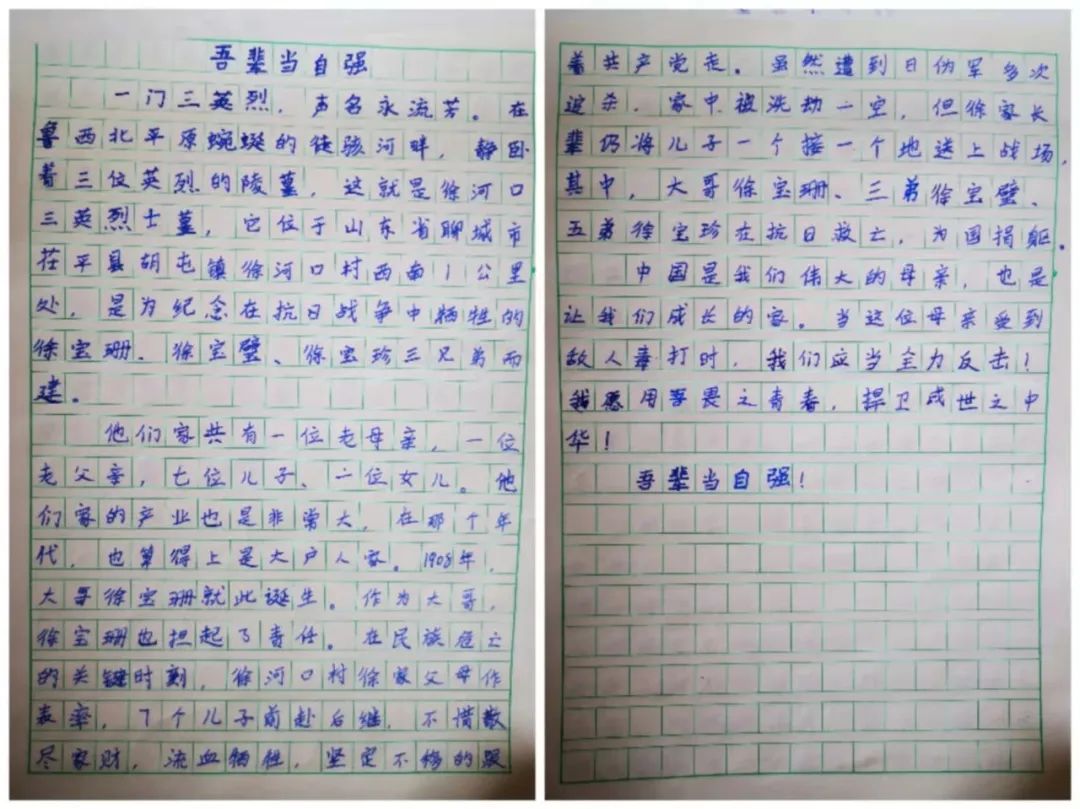 吾辈当自强
一门三英烈，声名永流芳。在
鲁西北平原蜿蜒的徒骇河畔，静卧
着三位英烈的陵墓，这就是徐河口
三英烈士墓，它位于山东省聊城市
茌平县胡屯镇徐河口村西南1公里
处，是为纪念在抗日战争中牺牲的
徐宝珊、徐宝璧、徐宝珍三兄弟而
建。
他们家共有一位老母亲，一位
老父亲，七位儿子、一位女儿。他
们家的产业也是非常大，在那个年
代，也算得上是大户人家。1908年，
大哥徐宝珊就此诞生。作为大哥，
徐宝珊也担起了责任。在民族危亡
的关键时刻，徐河口村徐家父母作
表率，7个儿子前赴后继，不惜散
尽家财，流血牺牲，坚定不移的跟
着共产党走。虽然遭到日伪军多次
追杀，家中被洗劫一空，但徐家长
辈仍将儿子一个接一个地送上战场，
其中，大哥徐宝珊、三弟徐宝璧、
五弟徐宝珍在抗日救亡，为国捐躯。
中国是我们伟大的母亲，也是
让我们成长的家。当这位母亲受到
敌人毒打时，我们应当全力反击！
我愿用吾畏之青春，捍卫成世之中
华！
吾辈当自强！